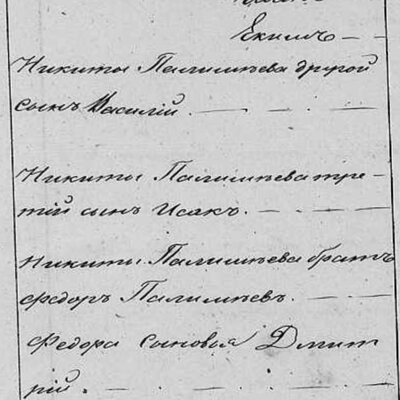 Екимъ
Никиты Палимпѣева другой
сынъ Василій.
Никиты Палимпѣева тре-
тій сынъ Исакъ.
Никиты Палимпѣева братъ
Федоръ Палимпѣевъ.
Федора сыновья Дмит
рій.